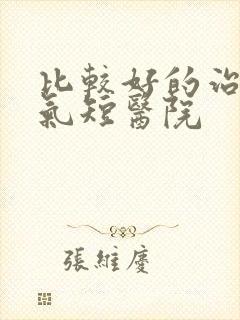 比較好的治
氣短醫院
張維慶